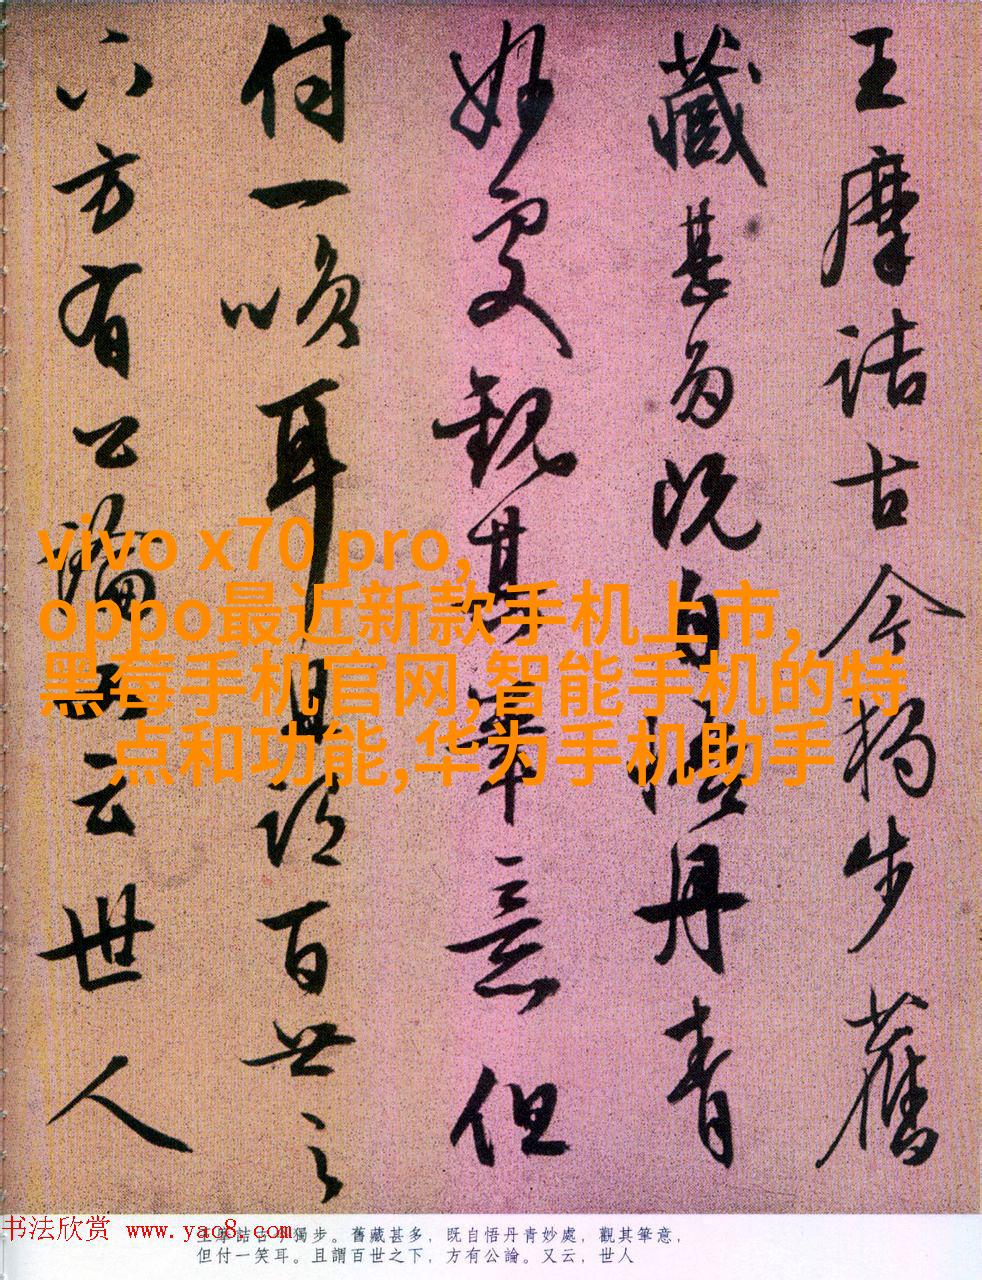 王摩詰古今獨步舊
藏甚多既自悟丹青
妙處觀其筆意但
付一笑耳且謂百世之
下方有公論又云世人
vivo x70 pro,
oppo最近新款手机上市,
黑莓手机官网,智能手机的特
点和功能,华为手机助手
书法欣赏 www.yac8.com
王摩詰古今獨步。舊藏甚多，既自悟丹青妙處，觀其筆意，
但付一笑耳。且謂百世之下，方有公論。又云，世人